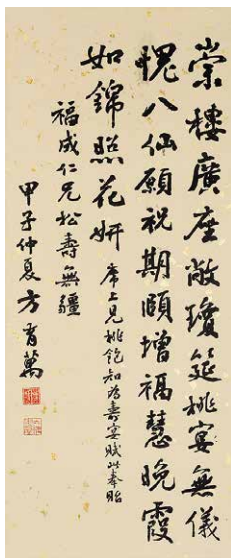 崇樓廣座敞瓊筵桃宴無儀
愧八仙願祝期頤增福慧晚霞
如錦照花妍 席上見桃飽知為壽宴賦此奉貽
福成仁兄松壽無疆
甲子仲夏方育萬